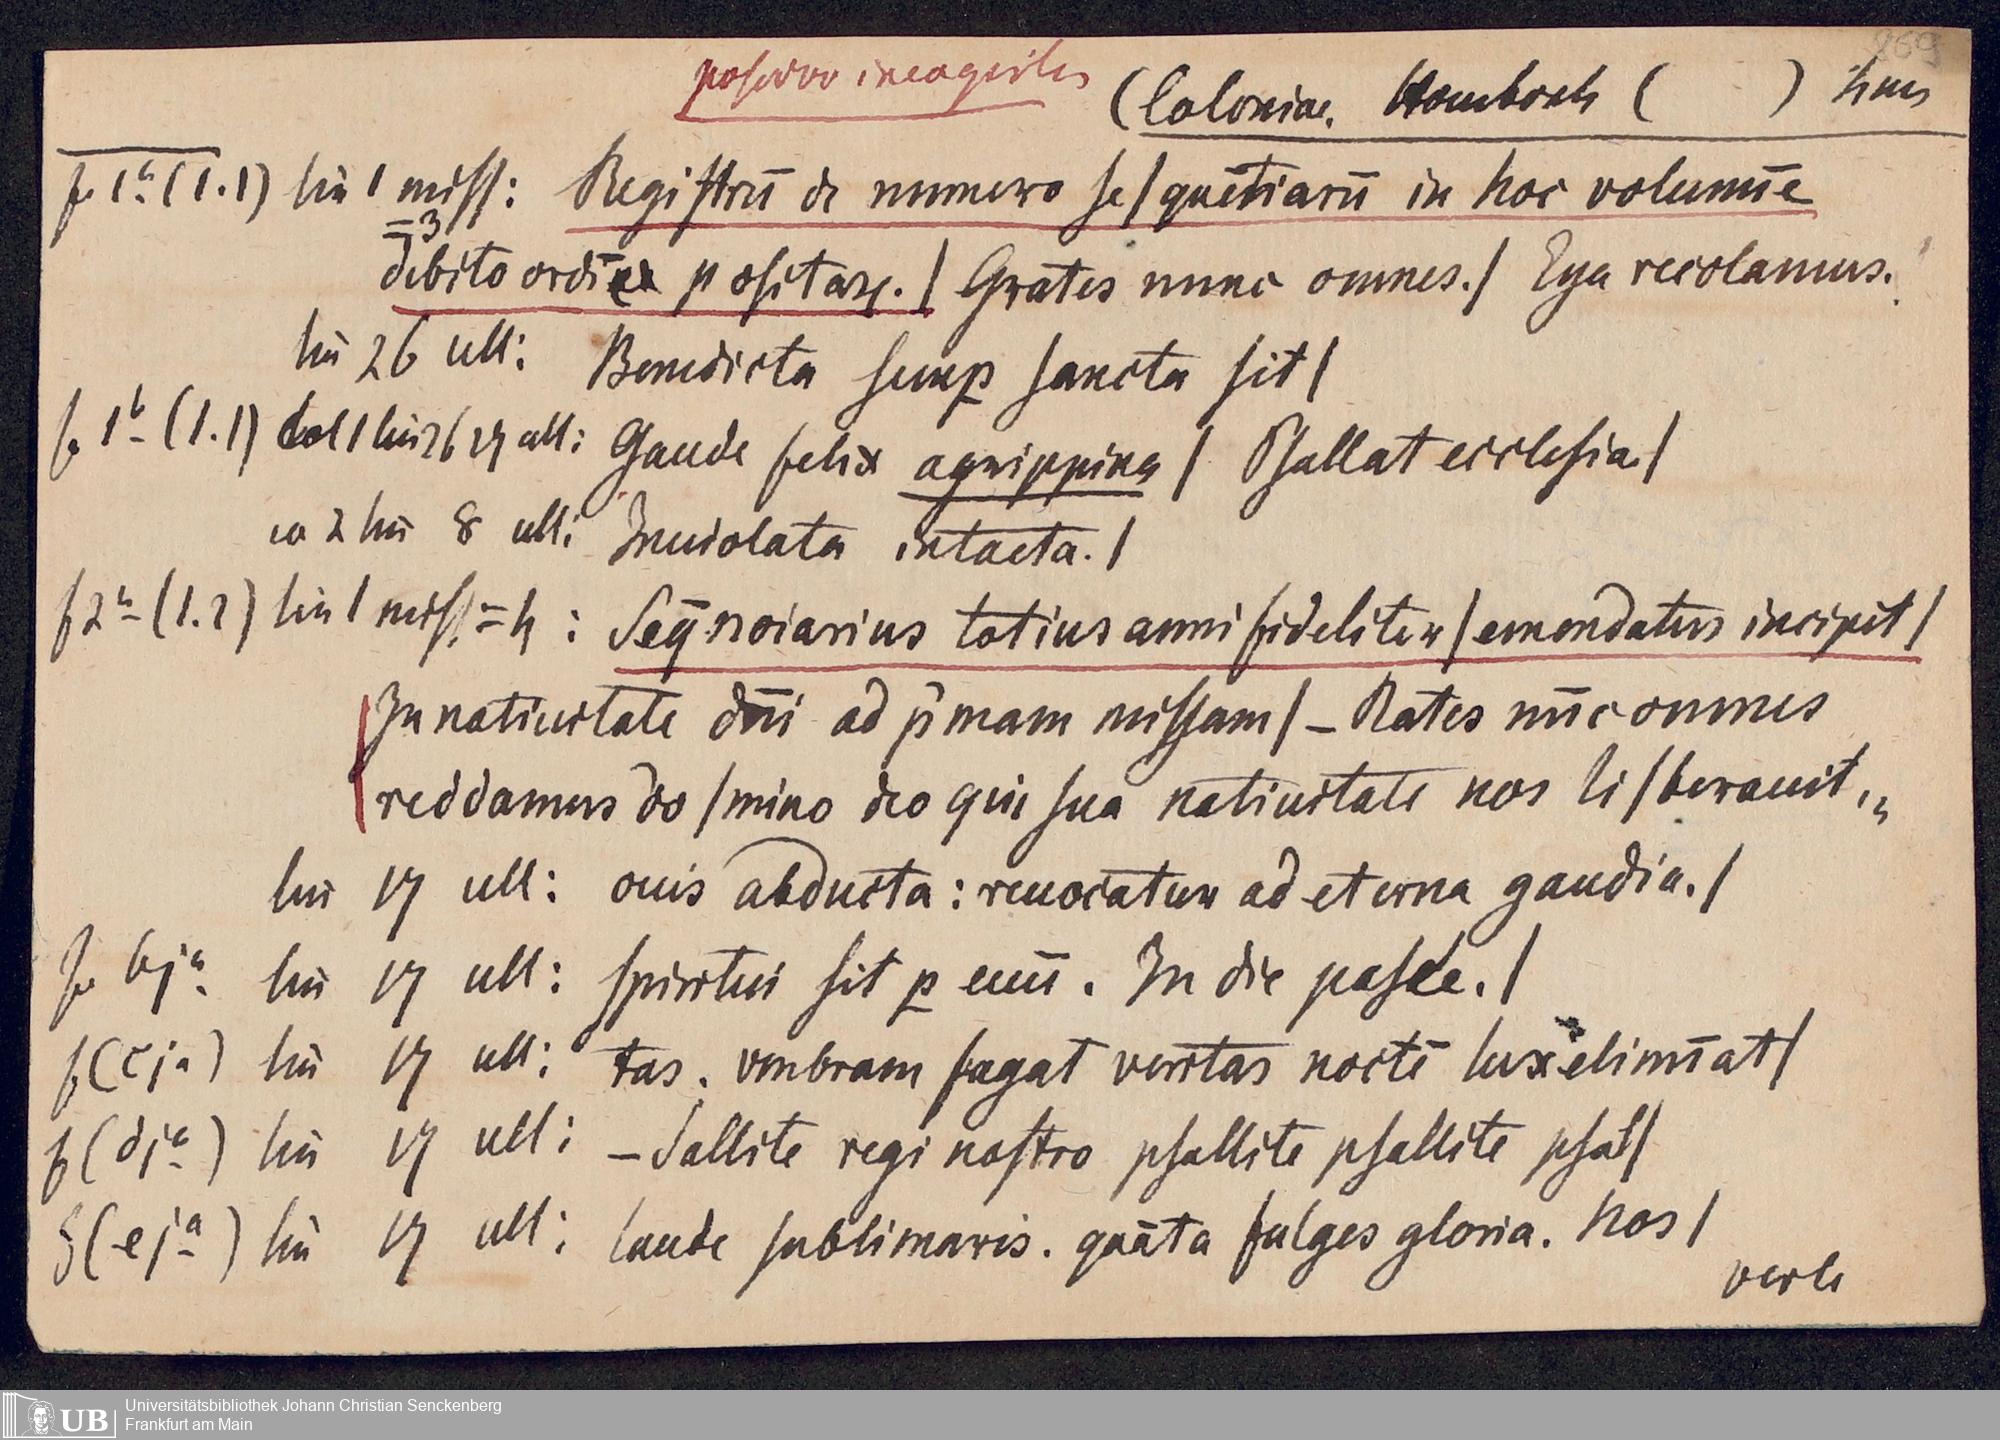 269
(Coloniae, Homboch ( )
f 1a (1.1) lin 1 miss: Registrū de numero se/quētiarū in hoc volumīe
=3
debito ordīe positarꝝ./ Grates nunc omnes./ Eya recolamus.
lin 26 ult: Benedicta semꝑ sancta sit/
f 1b (1.1) col 1 lin 26 ult: Gaude felix agrippina/ Psallat ecclesia./
co 2 lin 8 ult: Inuiolata intacta./
f 2a (1.2) lin 1 miss = 4: Seq̄nciarius totius anni fideliter/emendatus incipit/
In natiuitate dn̄i ad pͥmam missam/ – Rates nūc omnes
reddamus do/mino deo qui sua natiuitate nos li/berauit,,
lin 17 ult: ouis abducta: reuocatur ad eterna gaudia./
f bja lin 17 ult: spiritui sit ꝑ euū. In die pasce./
f (cja) lin 17 ult: tas. vmbram fugat veritas noctē lux elimīat/
f (dja) lin 17 ult: – Sallite regi nostro psallite psallite psal/
f (eja) lin 17 ult: laude sublimaris. quāta fulges gloria. hos/
verte
Universitätsbibliothek Johann Christian Senckenberg
Frankfurt am Main
UB